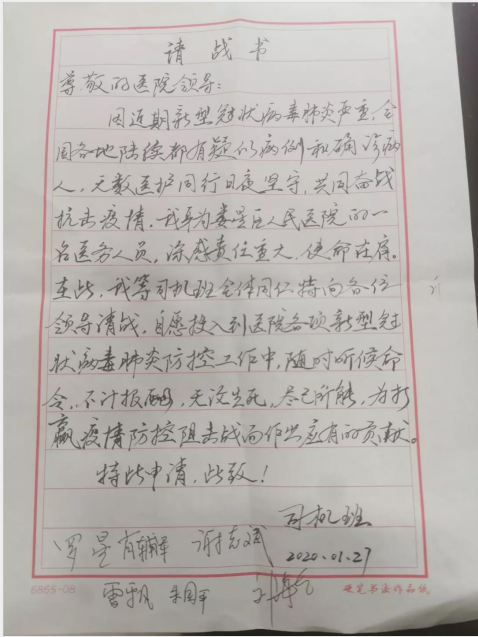 请战书
尊敬的医院领导:
因近期新型冠状病毒肺炎严重,全
国各地陆续都有疑似病例和确诊病
人,无数医护同行日夜坚守,共同奋战
抗击疫情。我身为娄星区人民医院的一
名医务人员,深感责任重大,使命在肩。
在此,我等司机班全体同仁特向各位
领导请战,自愿投入到医院各项新型冠
状病毒肺炎防控工作中,随时听候命
令,不计报酬,无论生死,尽己所能,为打
赢疫情防控阻击战而作出应有的贡献。
特此申请,此致!
司机班
罗星 谢志斌 2020.01.27
6865-08 曹飘 朱国平 硬笔书法作品纸